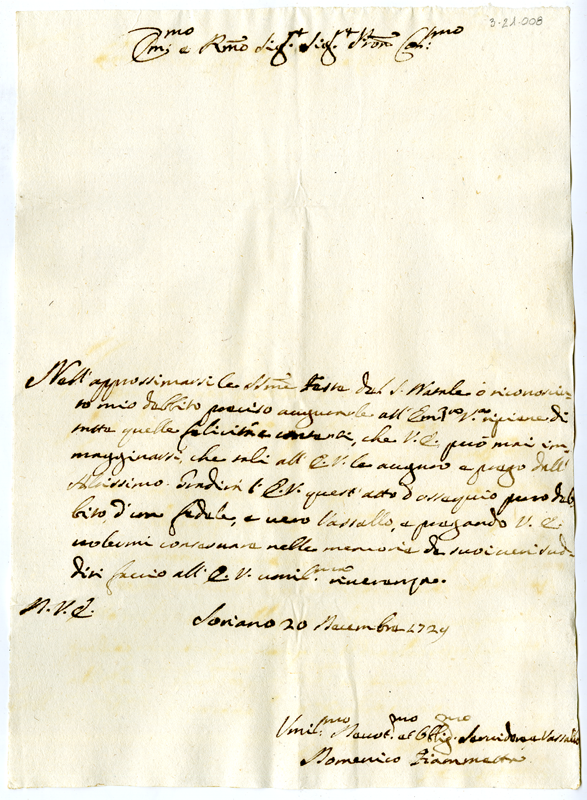 3-21-008
Em.mo e Rmo Sig.r Sig.r Pron Col:mo
Nell'approssimarsi le Stme Feste del S. Natale ò riconosciu-
to mio debbito preciso augurarle all'Em.za V.ra ripiene di
tutte quelle felicità e contenti, che V.E. può mai im-
magginarsi, che tali all'E.V. le auguro e prego dall'
Altissimo. Gradirà l'E.V. quest'atto d'ossequio puro deb-
bito, d'un fedele, e vero Vassallo, e pregando V.E.
volermi conservare nelle memorie de suoi veri sud-
diti faccio all'E.V. umil.ma riverenza.
D.V.E.
Soriano 20 Decembre 1729
Umil.mo Devot.mo et Obblig.mo Servidore e Vassallo
Domenico Fiammetta